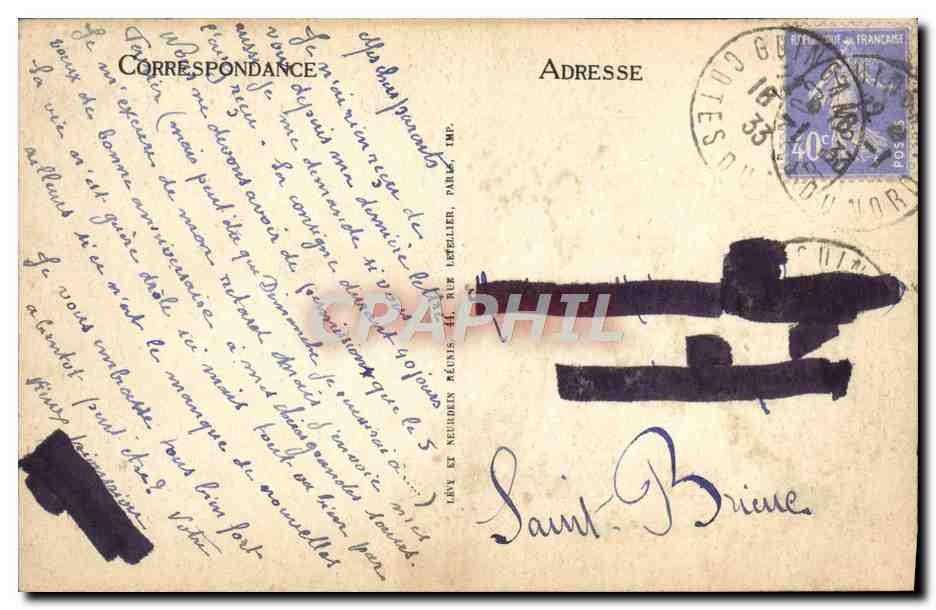 CORRESPONDANCE
Mes chers parents
Je n'ai rien reçu de
vous depuis ma dernière lettre
aussi je me demande si vous
l'avez reçu. La consigne durant 40 jours
Nous ne devons avoir de permissions que le 5
(mais peut-être que Dimanche je
Je m'excuse de mon retard après d'envoie mes
vœux de bonne anniversaire à mes chères grandes sœurs.
La vie n'est guère drôle ici mais tout va bien par
ailleurs si ce n'est le manque de nouvelles
Je vous embrasse tous bien fort
à bientôt peut être? Votre
LÉVY ET NEURDEIN RÉUNIS, 44, RUE LETELLIER, PARIS, IMP.
ADRESSE
Saint-Brieuc
RÉPUBLIQUE FRANÇAISE
40c
POSTES
GUINGAMP
COTES DU NORD
16
33
CPARHIL